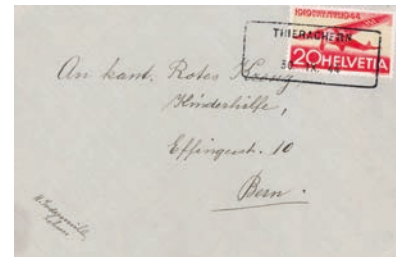 1919 1944
THIERACHERN
30. IX. 44
20 HELVETIA
An kant. Rotes Kreuz,
Kinderhilfe,
Effingerstr. 10
Bern.